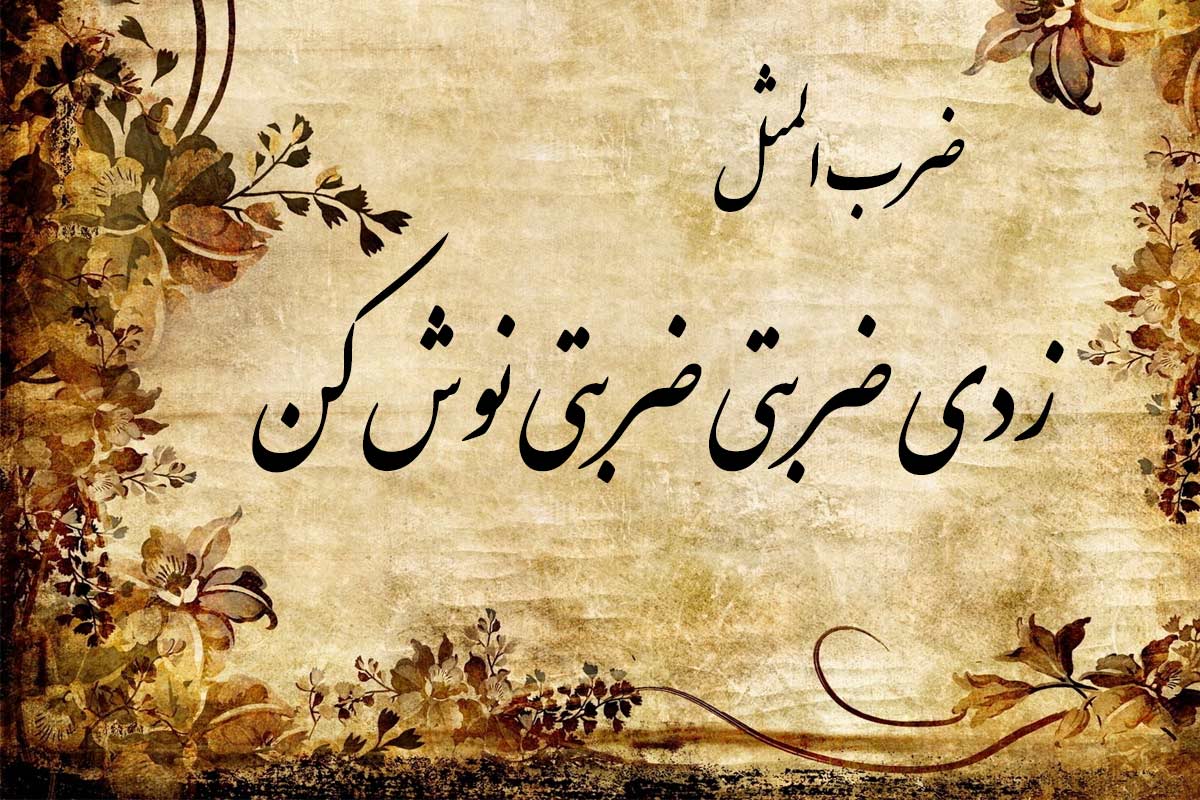 ضرب المثل
زدی ضربتی ضربتی نوش کن